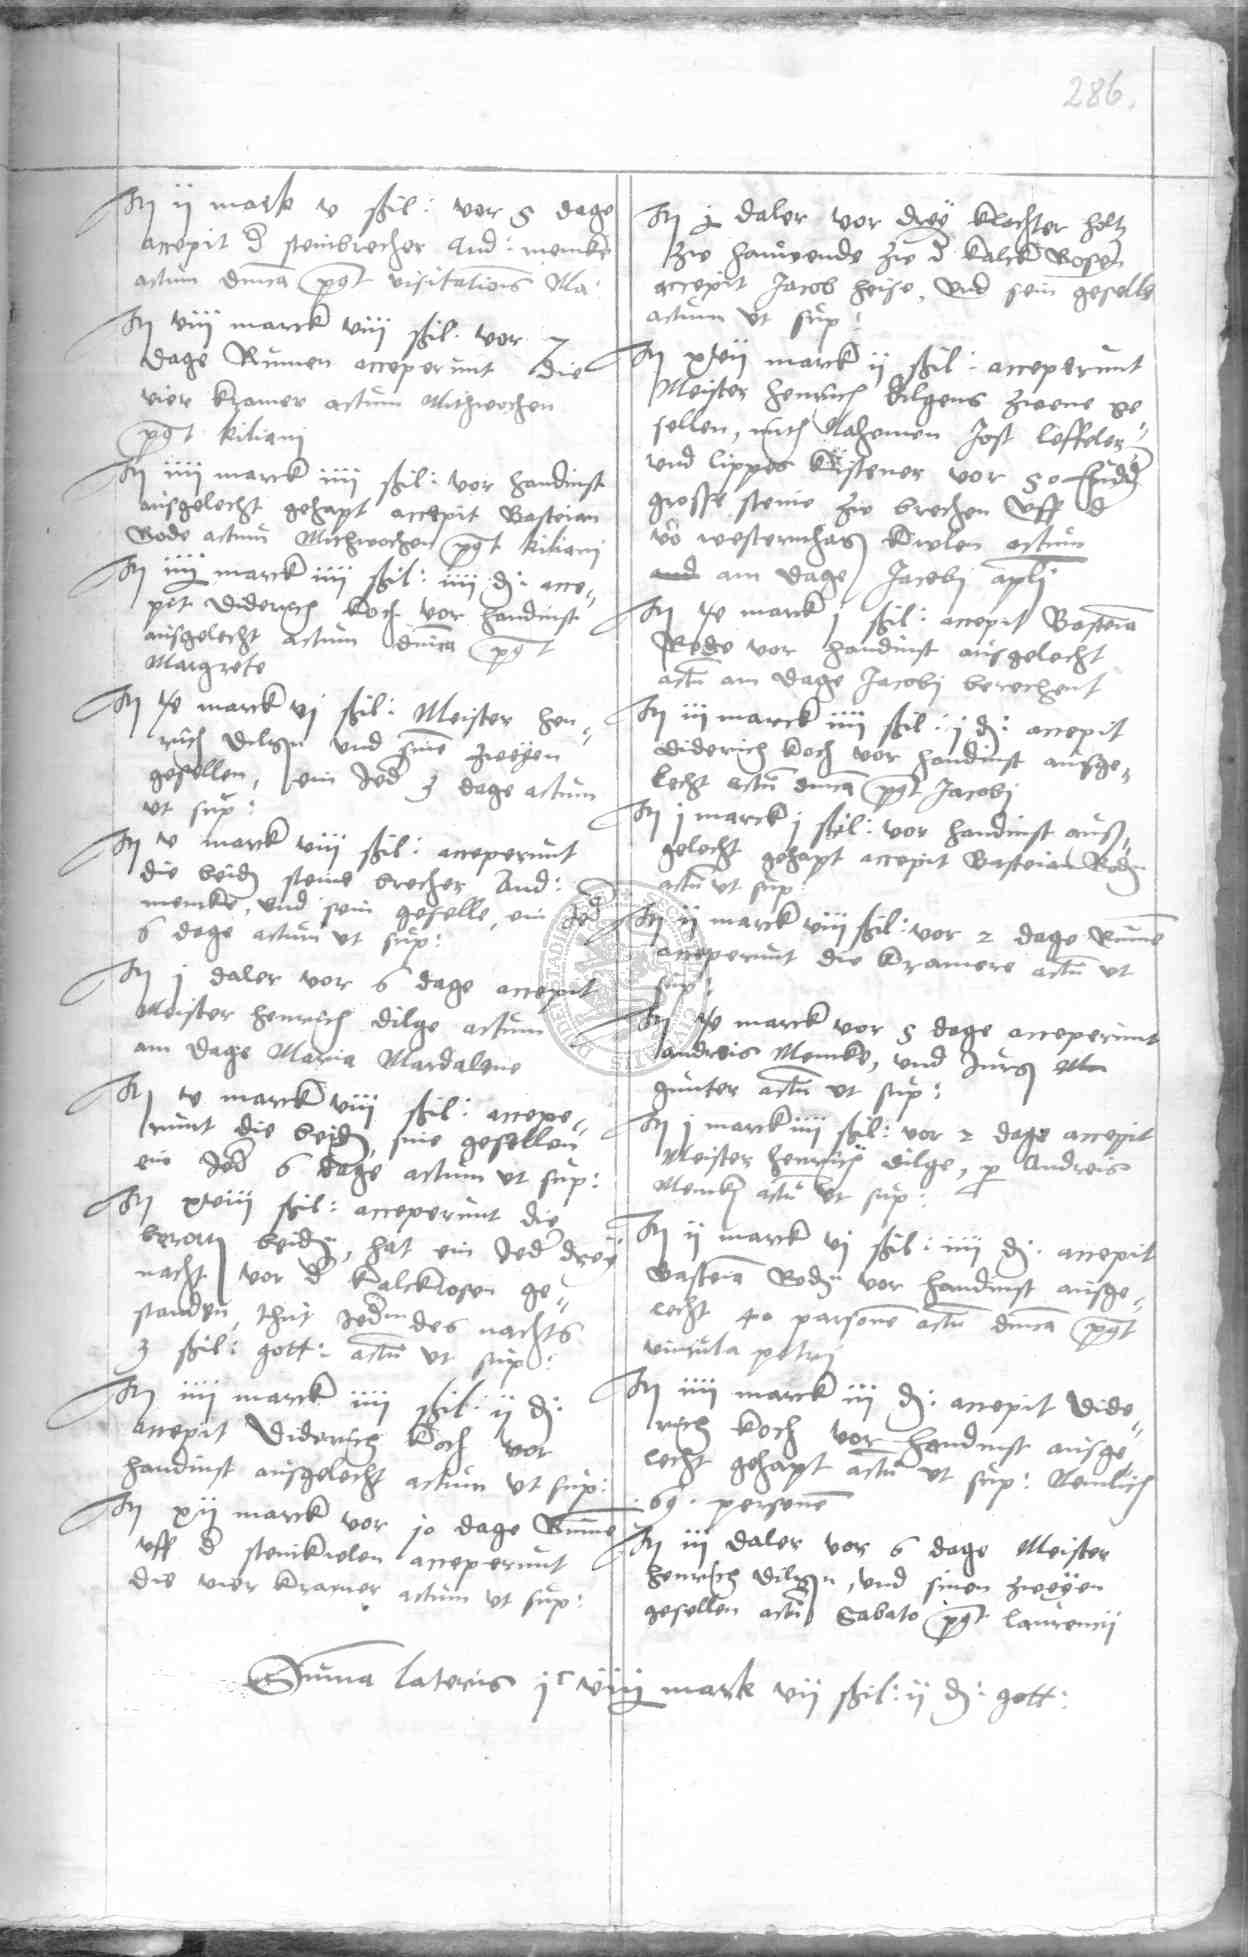 286.
It ij mark v ßil: vor 5 dage
accepit d steinbrecher And: memke
actum dnica post visitationis Ma:
It viij marck viij ßil: vor 7
dage Rumen acceperunt die
vier kramer actum Mithwochen
post kiliani
It iiij marck iiij ßil: vor handinst
ausgelecht gehapt accepit Basteian
Rode actum Mithwochen post kiliani
It iiij marck iiij ßil: iiij d: acce-
pit Diderich koch vor handinst
ausgelecht actum dnica post
Margrete
It marck vj ßil: Meister hen-
rich Dilgen und sine zweyen
gesellen, ein Jed 3 dage actum
ut sup:
It v marck viij ßil: acceperunt
die beidn steine brecher And:
memke, und sein geselle, ein Jed
6 dage actum ut sup:
It j daler vor 6 dage accepit
Meister henrich dilge actum
am dage Maria Mardalene
It v marck viij ßil: accepe-
runt die beidn sine gesellen
ein Jed 6 dage actum ut sup:
It xviij ßil: acceperunt die
beidn, hat ein Jed drey
nacht vor d kalckrosen ge-
standen, thut des nachts
3 ßil: gott: actu ut sup:
It iiij marck iiij ßil: ij d:
accepit Diderich koch vor
handinst ausgelecht actum ut sup:
It xij marck vor 10 dage Rume
uff d steinkulen acceperunt
die vier kramer actum ut sup:
It j daler vor drey klachter holtz
zu hauwende zu d kalck Rosen
accepit Jacob heise, und sein geselle
actum ut sup:
It xvij marck ij ßil: acceperunt
Meister henrich dilgens zweene ge-
sellen, mith Nahemen Jost leffeler
und lippes kistener vor 50 fuder
grosse steine zu brechen uff d
vo westernhagn kulen actum
am dage Jacobj apli
It marck j ßil: accepit Basteia
Rode vor handinst ausgelecht
actu am dage Jacobj berechent
It iij marck iiij ßil: j d: accepit
Diderich koch vor handinst ausge-
lecht actu dnica post Jacobj
It j marck j ßil: vor handinst auß-
gelecht gehapt accepit Basteian Rodn
actu ut sup:
It ij marck viij ßil: vor 2 dage Rume
acceperunt die kramere actu ut
sup:
It marck vor 5 dage acceperunt
andreis Memke, und Jurgn
gunter actu ut sup:
It j marck iiij ßil: vor 2 dage accepit
Meister henrich dilge, p Andreis
Memkn actu ut sup:
It ij marck vj ßil: iiij d: accepit
Basteia Rodn vor handinst ausge-
lecht 40 parsone actu dnica post
vincula petrj
It iiij marck iij d: accepit Dide-
rich koch vor handinst ausge-
lecht gehapt actu ut sup: Nemlich
69. persone
It iij daler vor 6 dage Meister
henrich Dilgn, und sinen zweyen
gesellen actu Sabato post laurencij
Suma lateris jc viij mark vij ßil: ij d: gott: